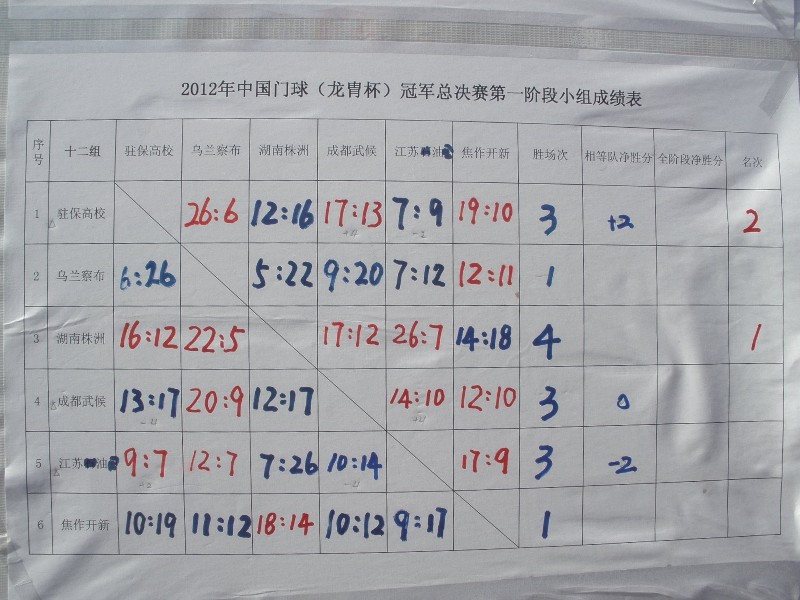 2012年中国门球（龙胄杯）冠军总决赛第一阶段小组成绩表
序号 十二组 驻保高校 乌兰察布 湖南株洲 成都武候 江苏 油 焦作开新 胜场次 相等队净胜分 全阶段净胜分 名次
1 驻保高校 26:6 12:16 17:13 7:9 19:10 3 +2 2
2 乌兰察布 6:26 5:22 9:20 7:12 12:11 1
3 湖南株洲 16:12 22:5 17:12 26:7 14:18 4 1
4 成都武候 13:17 20:9 12:17 14:10 12:10 3 0
5 江苏 油 9:7 12:7 7:26 10:14 17:9 3 -2
6 焦作开新 10:19 11:12 18:14 10:12 9:17 1